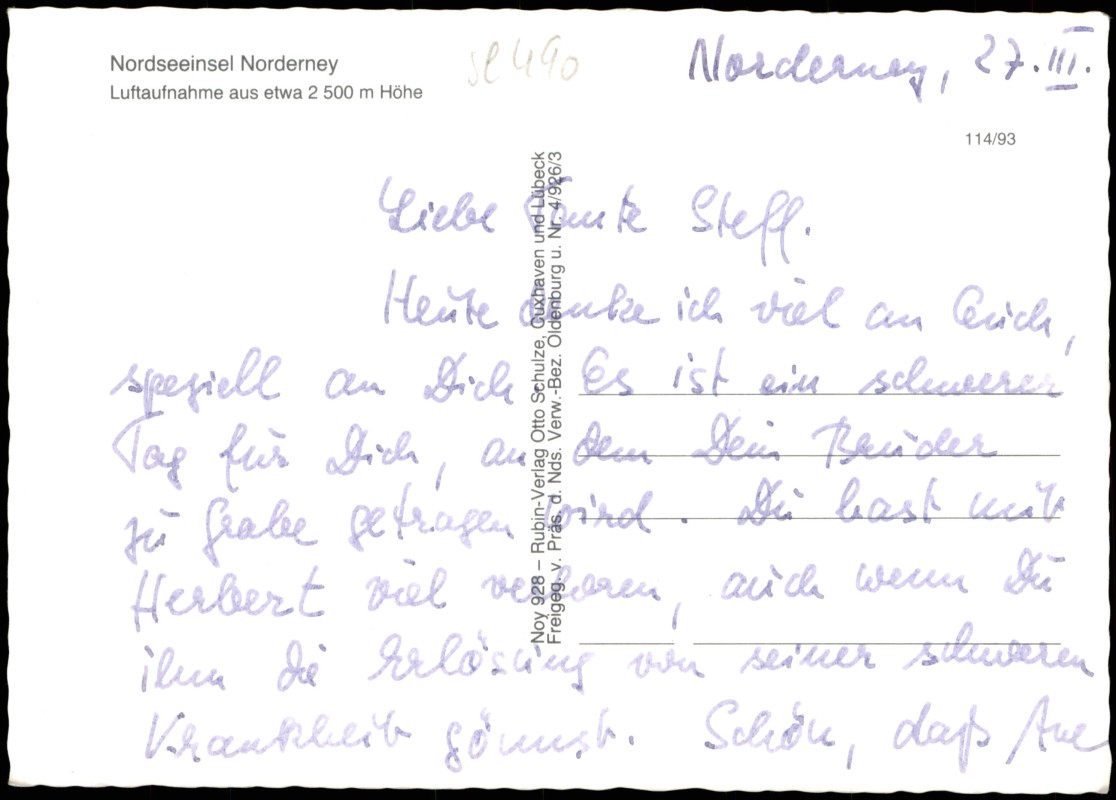 Nordseeinsel Norderney
Luftaufnahme aus etwa 2 500 m Höhe
sl 490
Norderney, 27. III.
114/93
Noy 928 – Rubin-Verlag Otto Schulze, Cuxhaven und Lübeck
Freigeg. v. Präs. d. Nds. Verw.-Bez. Oldenburg u. Nr. 4/926/3
Liebe Tante Steff.
Heute denke ich viel an Euch,
speziell an Dich. Es ist ein schwerer
Tag für Dich, an dem Dein Bruder
zu Grabe getragen wird. Du hast mit
Herbert viel verloren, auch wenn Du
ihm die Erlösung von seiner schweren
Krankheit gönnst. Schön, daß